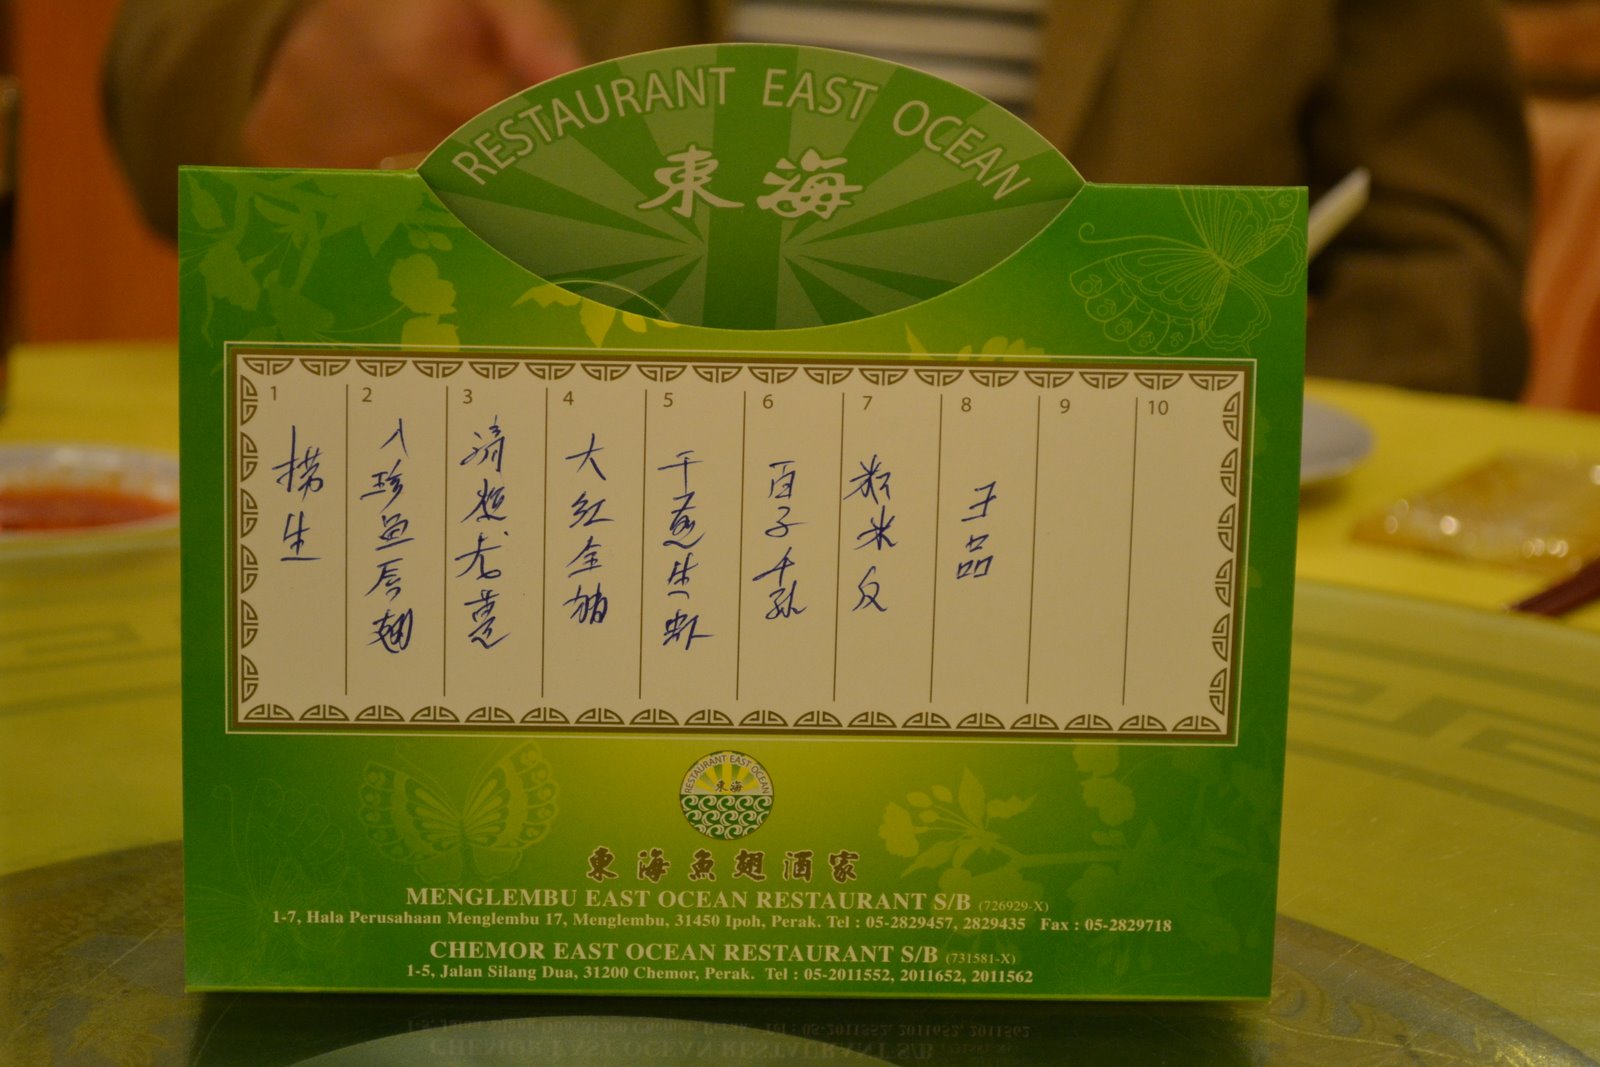 RESTAURANT EAST OCEAN
東海
1
捞生
2
八珍鱼唇翅
3
清蒸龙虎斑
4
大红全猪
5
干煎生虾
6
百子千孙
7
8
王品
9
10
RESTAURANT EAST OCEAN
東海
東海魚翅酒家
MENGLEMBU EAST OCEAN RESTAURANT S/B (726929-X)
1-7, Hala Perusahaan Menglembu 17, Menglembu, 31450 Ipoh, Perak. Tel : 05-2829457, 2829435 Fax : 05-2829718
CHEMOR EAST OCEAN RESTAURANT S/B (731581-X)
1-5, Jalan Silang Dua, 31200 Chemor, Perak. Tel : 05-2011552, 2011652, 2011562